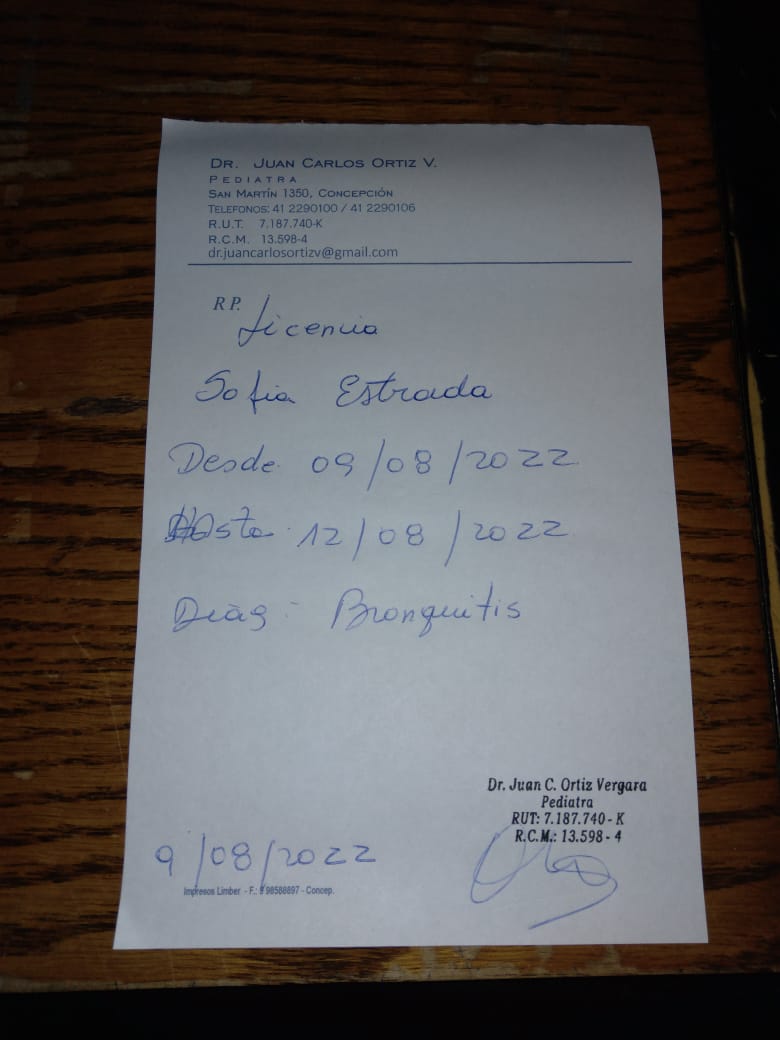 DR. JUAN CARLOS ORTIZ V.
PEDIATRA
SAN MARTÍN 1350, CONCEPCIÓN
TELEFONOS: 41 2290100 / 41 2290106
R.U.T. 7.187.740-K
R.C.M. 13.598-4
dr.juancarlosortizv@gmail.com
RP.
Licencia
Sofia Estrada
Desde 09/08/2022
Hasta 12/08/2022
Diag: Bronquitis
Dr. Juan C. Ortiz Vergara
Pediatra
RUT: 7.187.740-K
R.C.M.: 13.598-4
9/08/2022
Impresos Limber - F.: 9 98588897 - Concep.